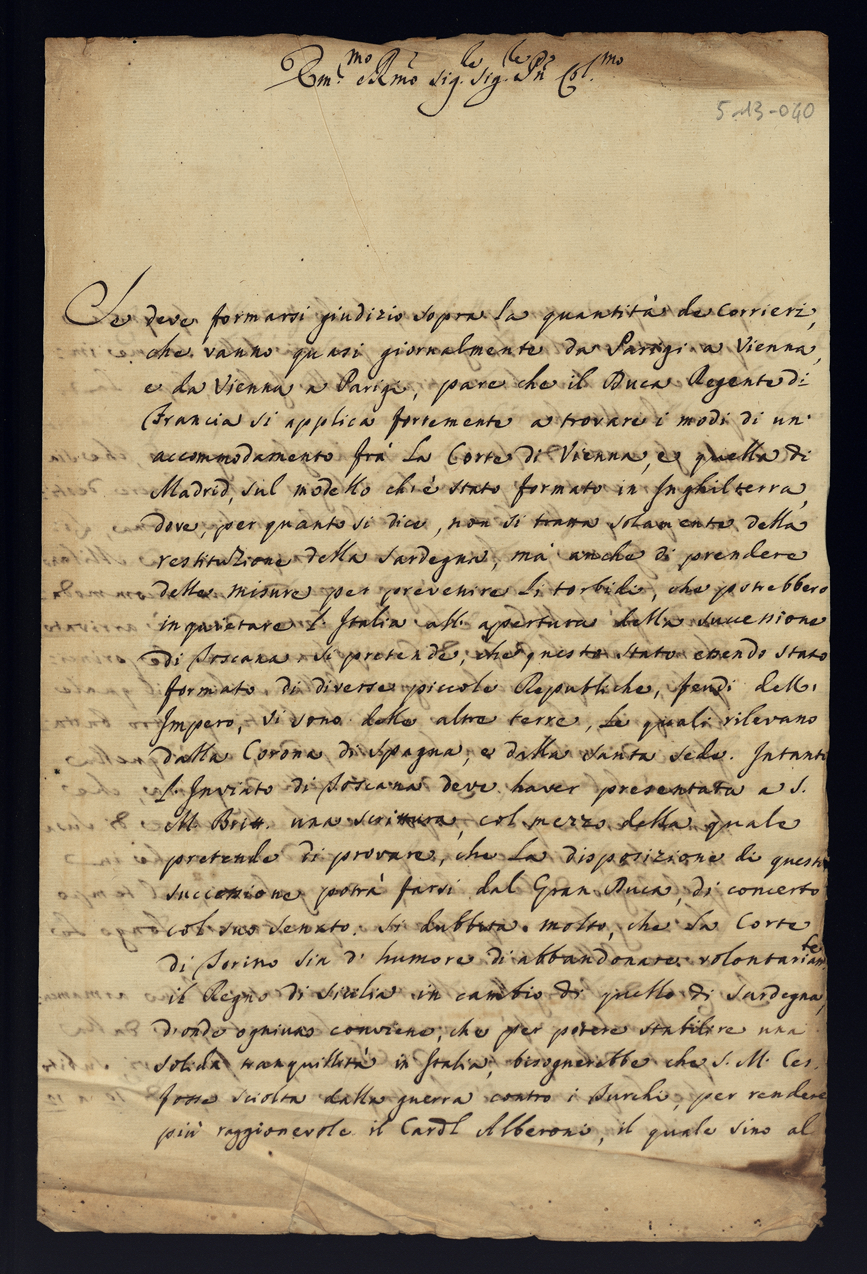 Em.mo e Rmo Sig.le Sig.le Pn̄ Col.mo
5-13-040
Se deve formarsi giudizio sopra la quantità de Corrieri,
che vanno quasi giornalmente da Parigi a Vienna,
e da Vienna a Parigi, pare che il Duca Regente di
Francia si applica fortemente a trovare i modi di un'
accommodamento frà la Corte di Vienna, e quella di
Madrid, sul modello ch'è stato formato in Inghilterra,
dove, per quanto si dice, non si tratta solamente della
restituzione della Sardegna, mà anche di prendere
delle misure per prevenire li torbidi, che potrebbero
inquietare l'Italia all'apertura della successione
di Toscana. Si pretende, che questo stato essendo stato
formato di diverse piccole Republiche, feudi dell'
Impero, vi sono delle altre terre, le quali rilevano
dalla Corona di Spagna, e dalla Santa Sede. Intanto
l'Inviato di Toscana deve haver presentata a S.
M. Britt. una scrittura, col mezzo della quale
pretende di provare, che la disposizione di questa
successione potrà farsi dal Gran Duca, di concerto
col suo Senato. Si dubbita molto, che la Corte
di Torino sia d'humore di abbandonare volontariamte
il Regno di Sicilia in cambio di quello di Sardegna,
d'onde ogniuno conviene, che per potere stabilire una
solida tranquillità in Italia, bisognerebbe che S. M. Ces.
fosse sciolta dalla guerra contro i Turchi, per rendere
più raggionevole il Cardl Alberoni, il quale sino al